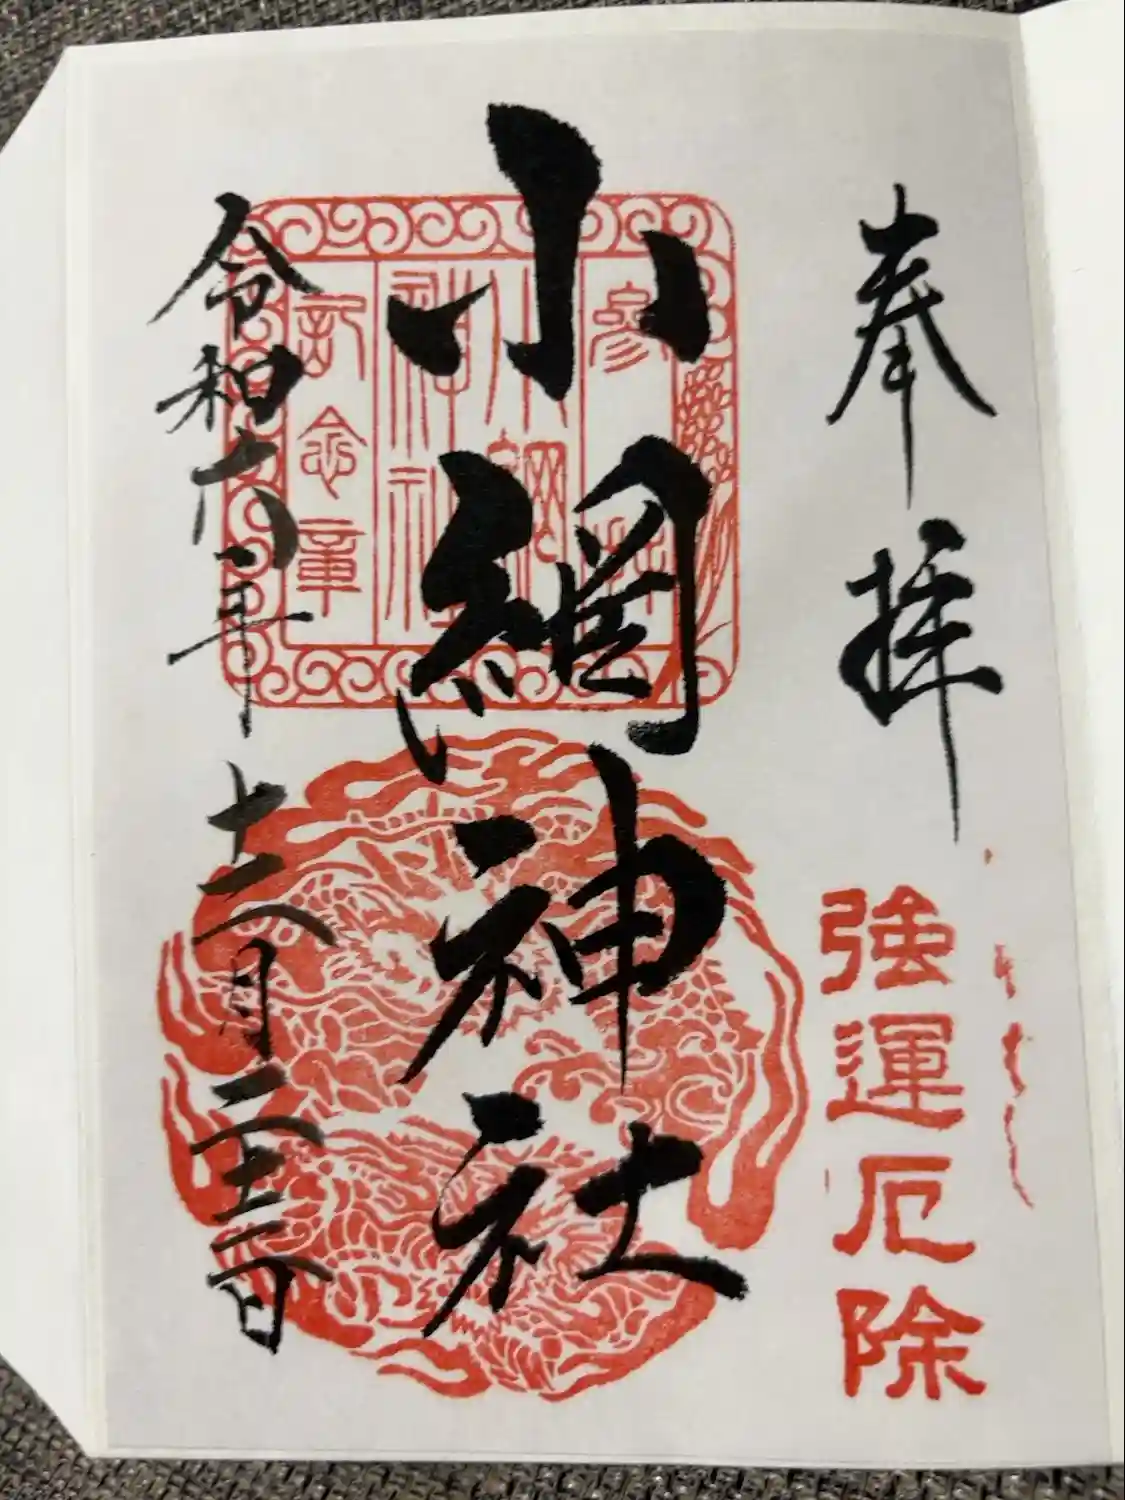 奉拝
強運厄除
小網神社
参拝
小網
神社
記念章
令和六年十二月二十二日